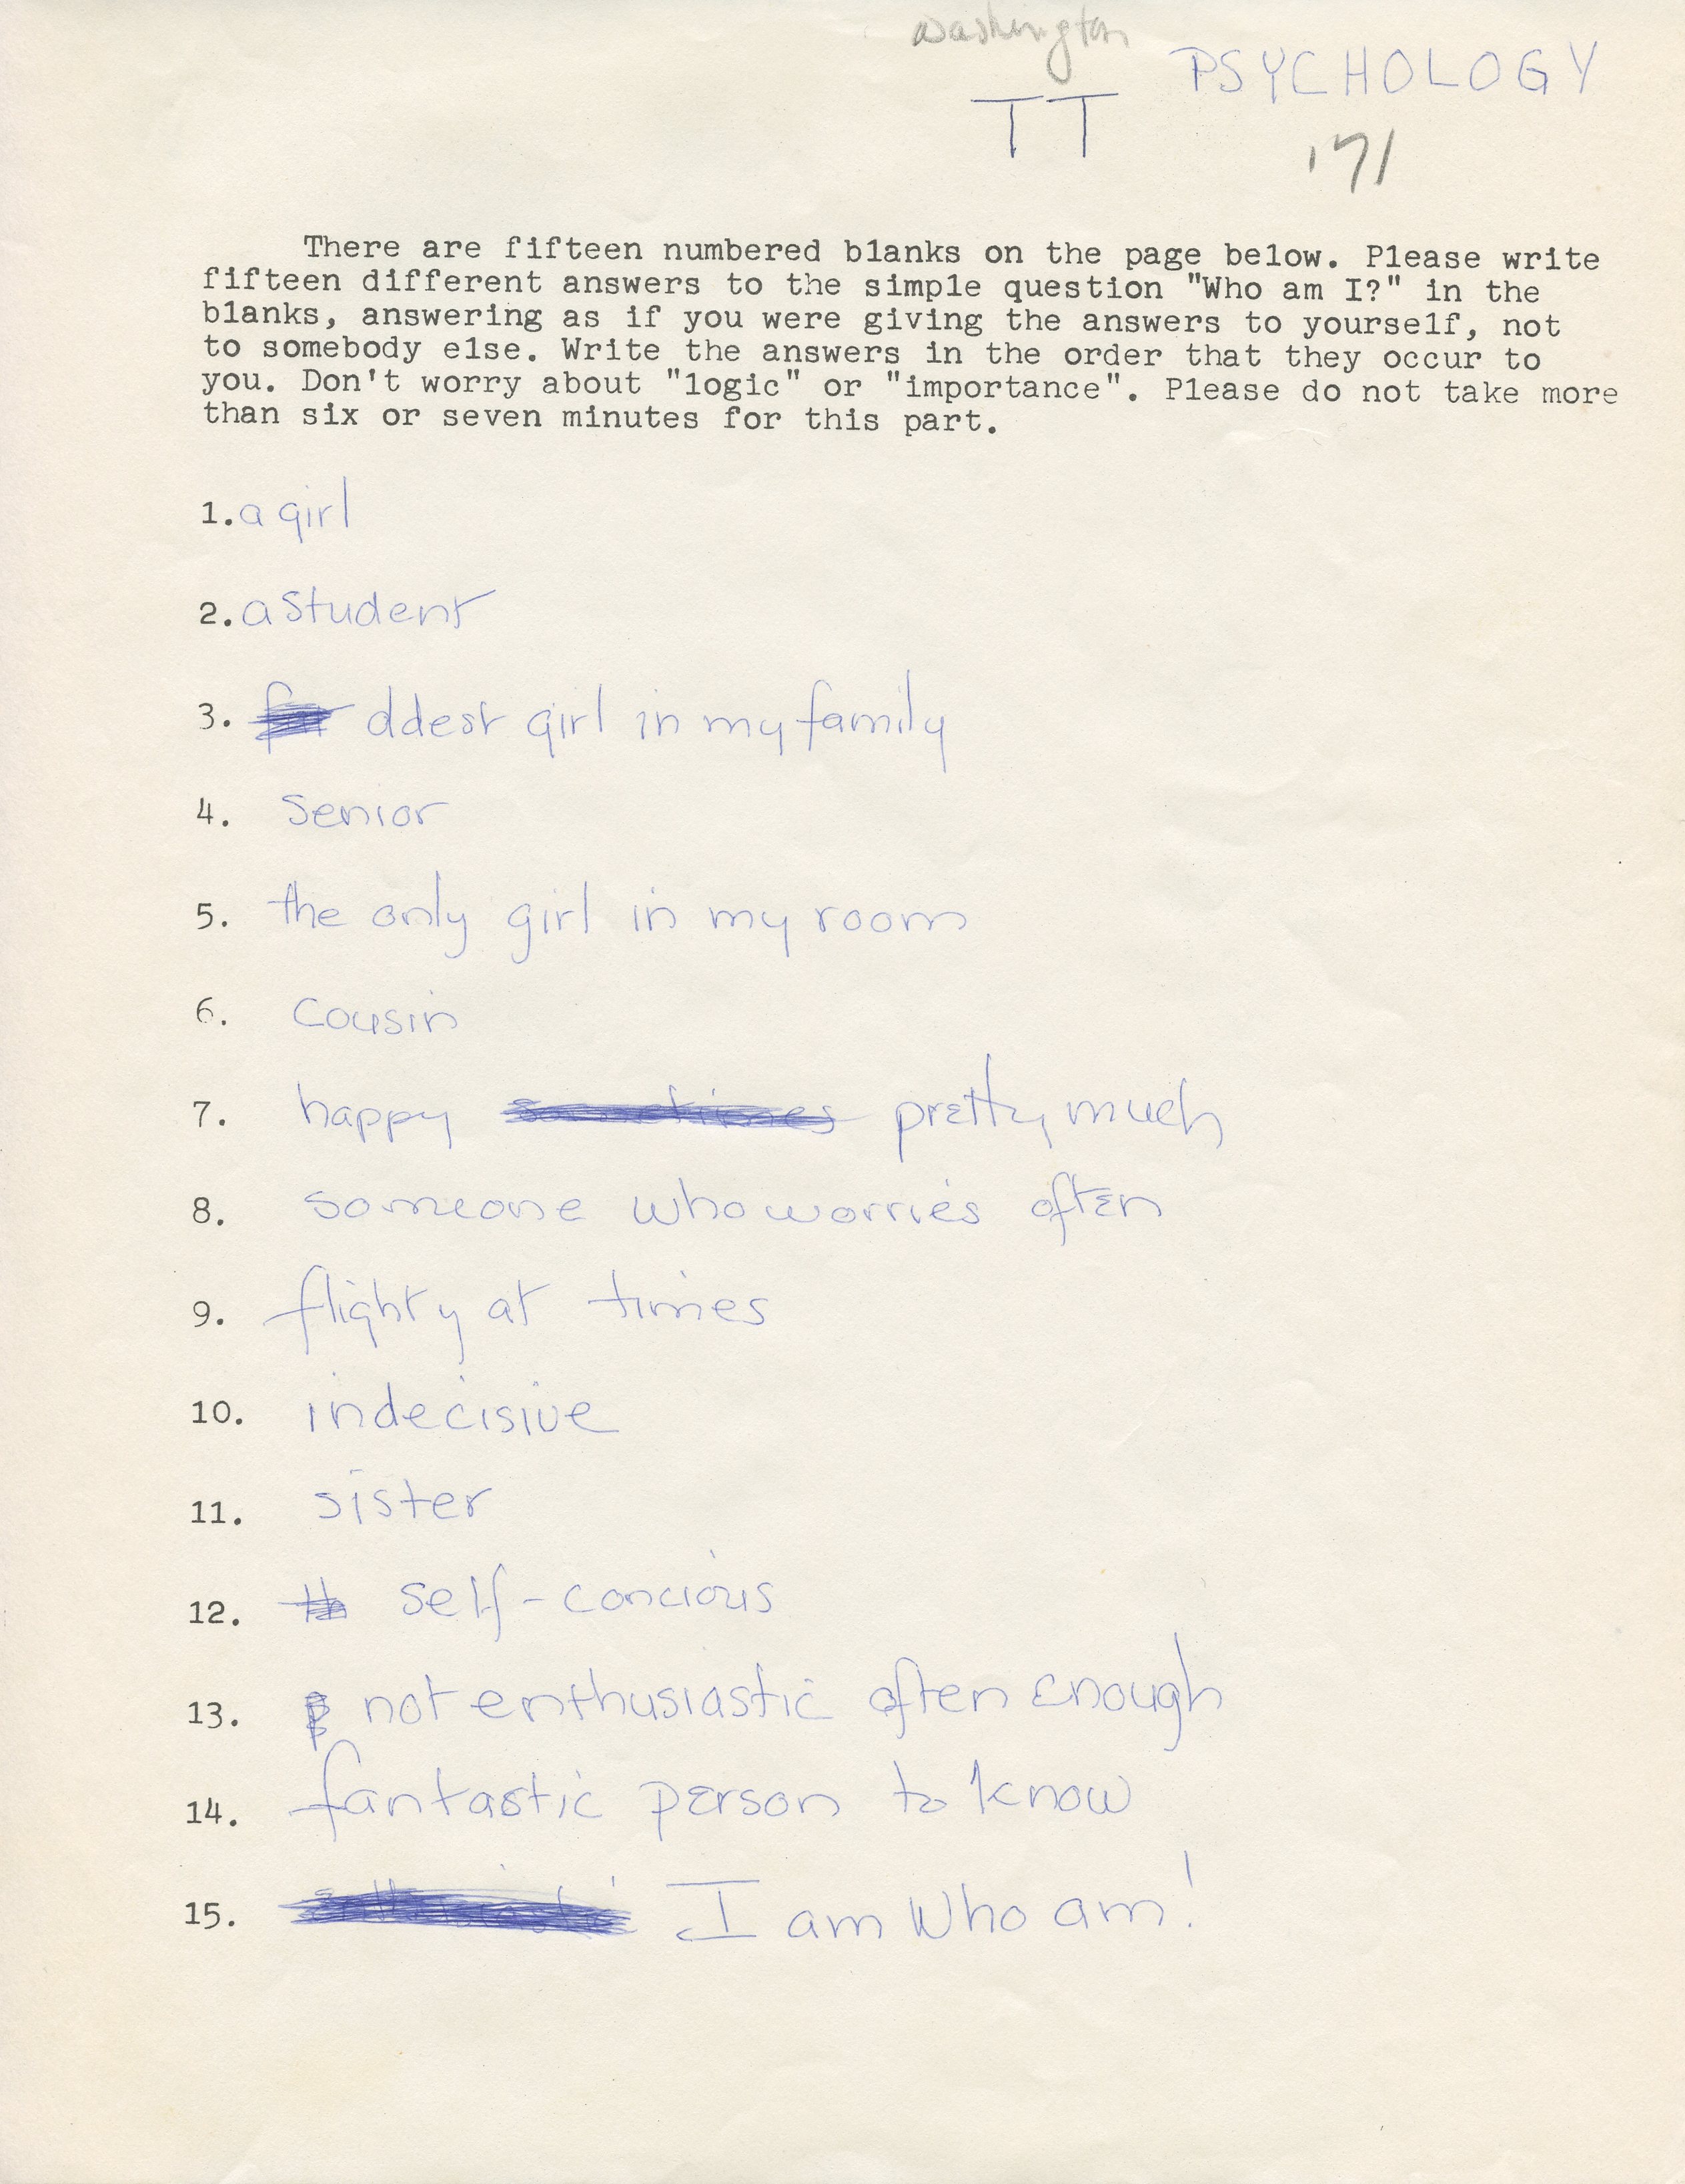 Washington
TT PSYCHOLOGY
'71
There are fifteen numbered blanks on the page below. Please write
fifteen different answers to the simple question "Who am I?" in the
blanks, answering as if you were giving the answers to yourself, not
to somebody else. Write the answers in the order that they occur to
you. Don't worry about "logic" or "importance". Please do not take more
than six or seven minutes for this part.
1. a girl
2. a student
3. oldest girl in my family
4. Senior
5. the only girl in my room
6. Cousin
7. happy sometimes pretty much
8. someone who worries often
9. flighty at times
10. indecisive
11. sister
12. self-concious
13. not enthusiastic often enough
14. fantastic person to know
15. I am who am!